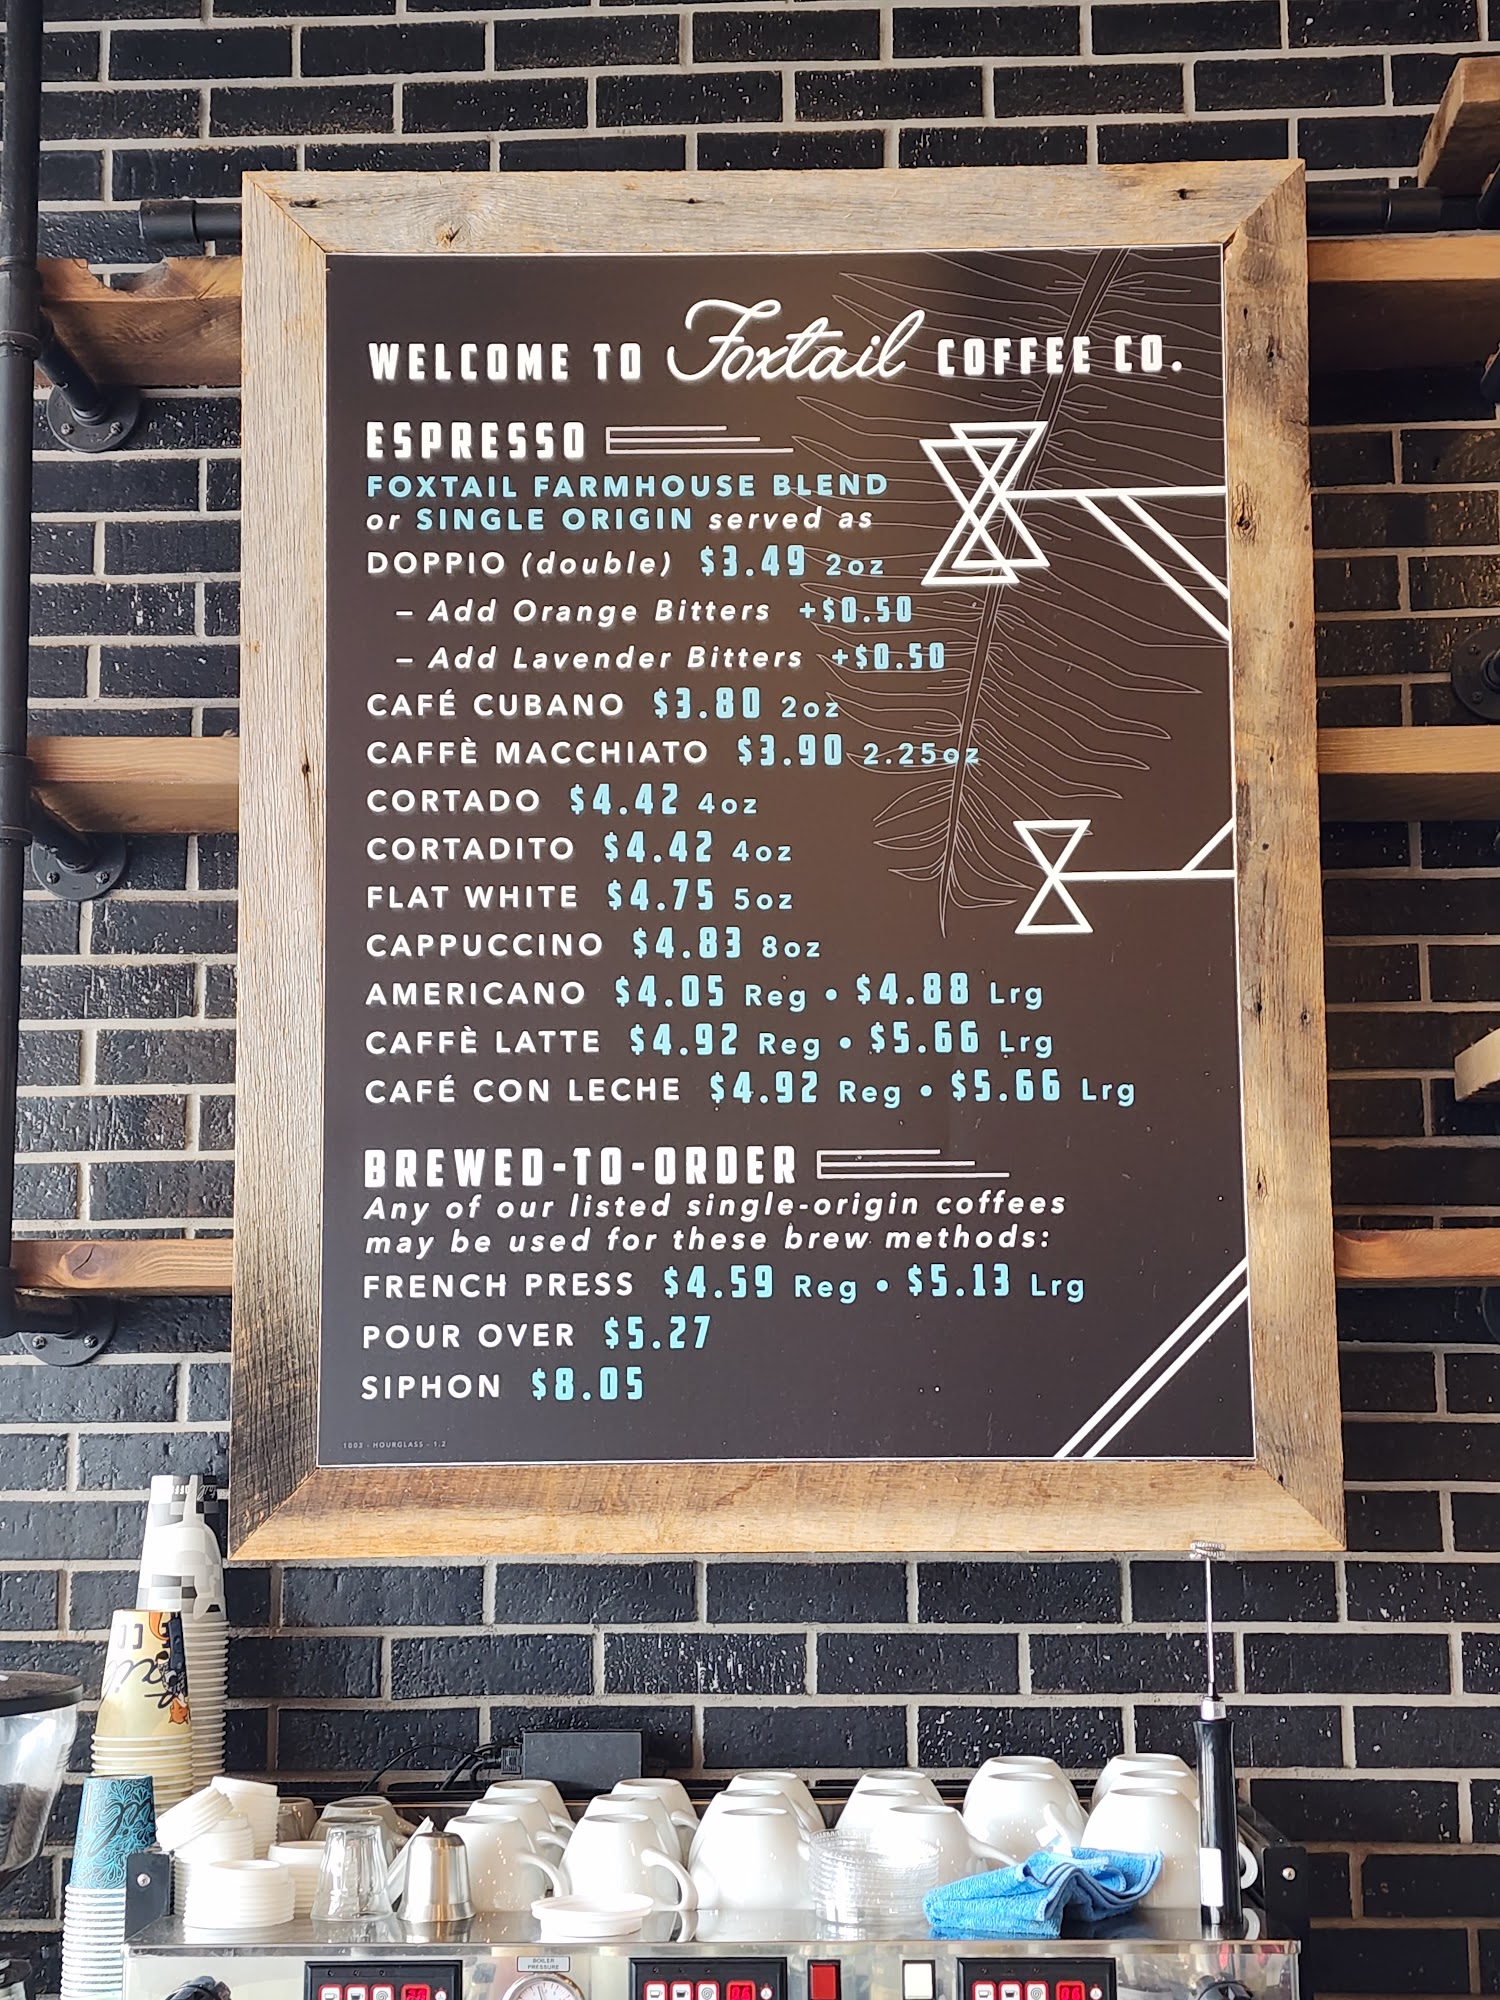 WELCOME TO Foxtail COFFEE CO.
ESPRESSO
FOXTAIL FARMHOUSE BLEND
or SINGLE ORIGIN served as
DOPPIO (double) $3.49 2oz
– Add Orange Bitters +$0.50
– Add Lavender Bitters +$0.50
CAFÉ CUBANO $3.80 2oz
CAFFÈ MACCHIATO $3.90 2.25oz
CORTADO $4.42 4oz
CORTADITO $4.42 4oz
FLAT WHITE $4.75 5oz
CAPPUCCINO $4.83 8oz
AMERICANO $4.05 Reg • $4.88 Lrg
CAFFÈ LATTE $4.92 Reg • $5.66 Lrg
CAFÉ CON LECHE $4.92 Reg • $5.66 Lrg
BREWED-TO-ORDER
Any of our listed single-origin coffees
may be used for these brew methods:
FRENCH PRESS $4.59 Reg • $5.13 Lrg
POUR OVER $5.27
SIPHON $8.05
1003 - HOURGLASS - 1.2
BOILER
PRESSURE